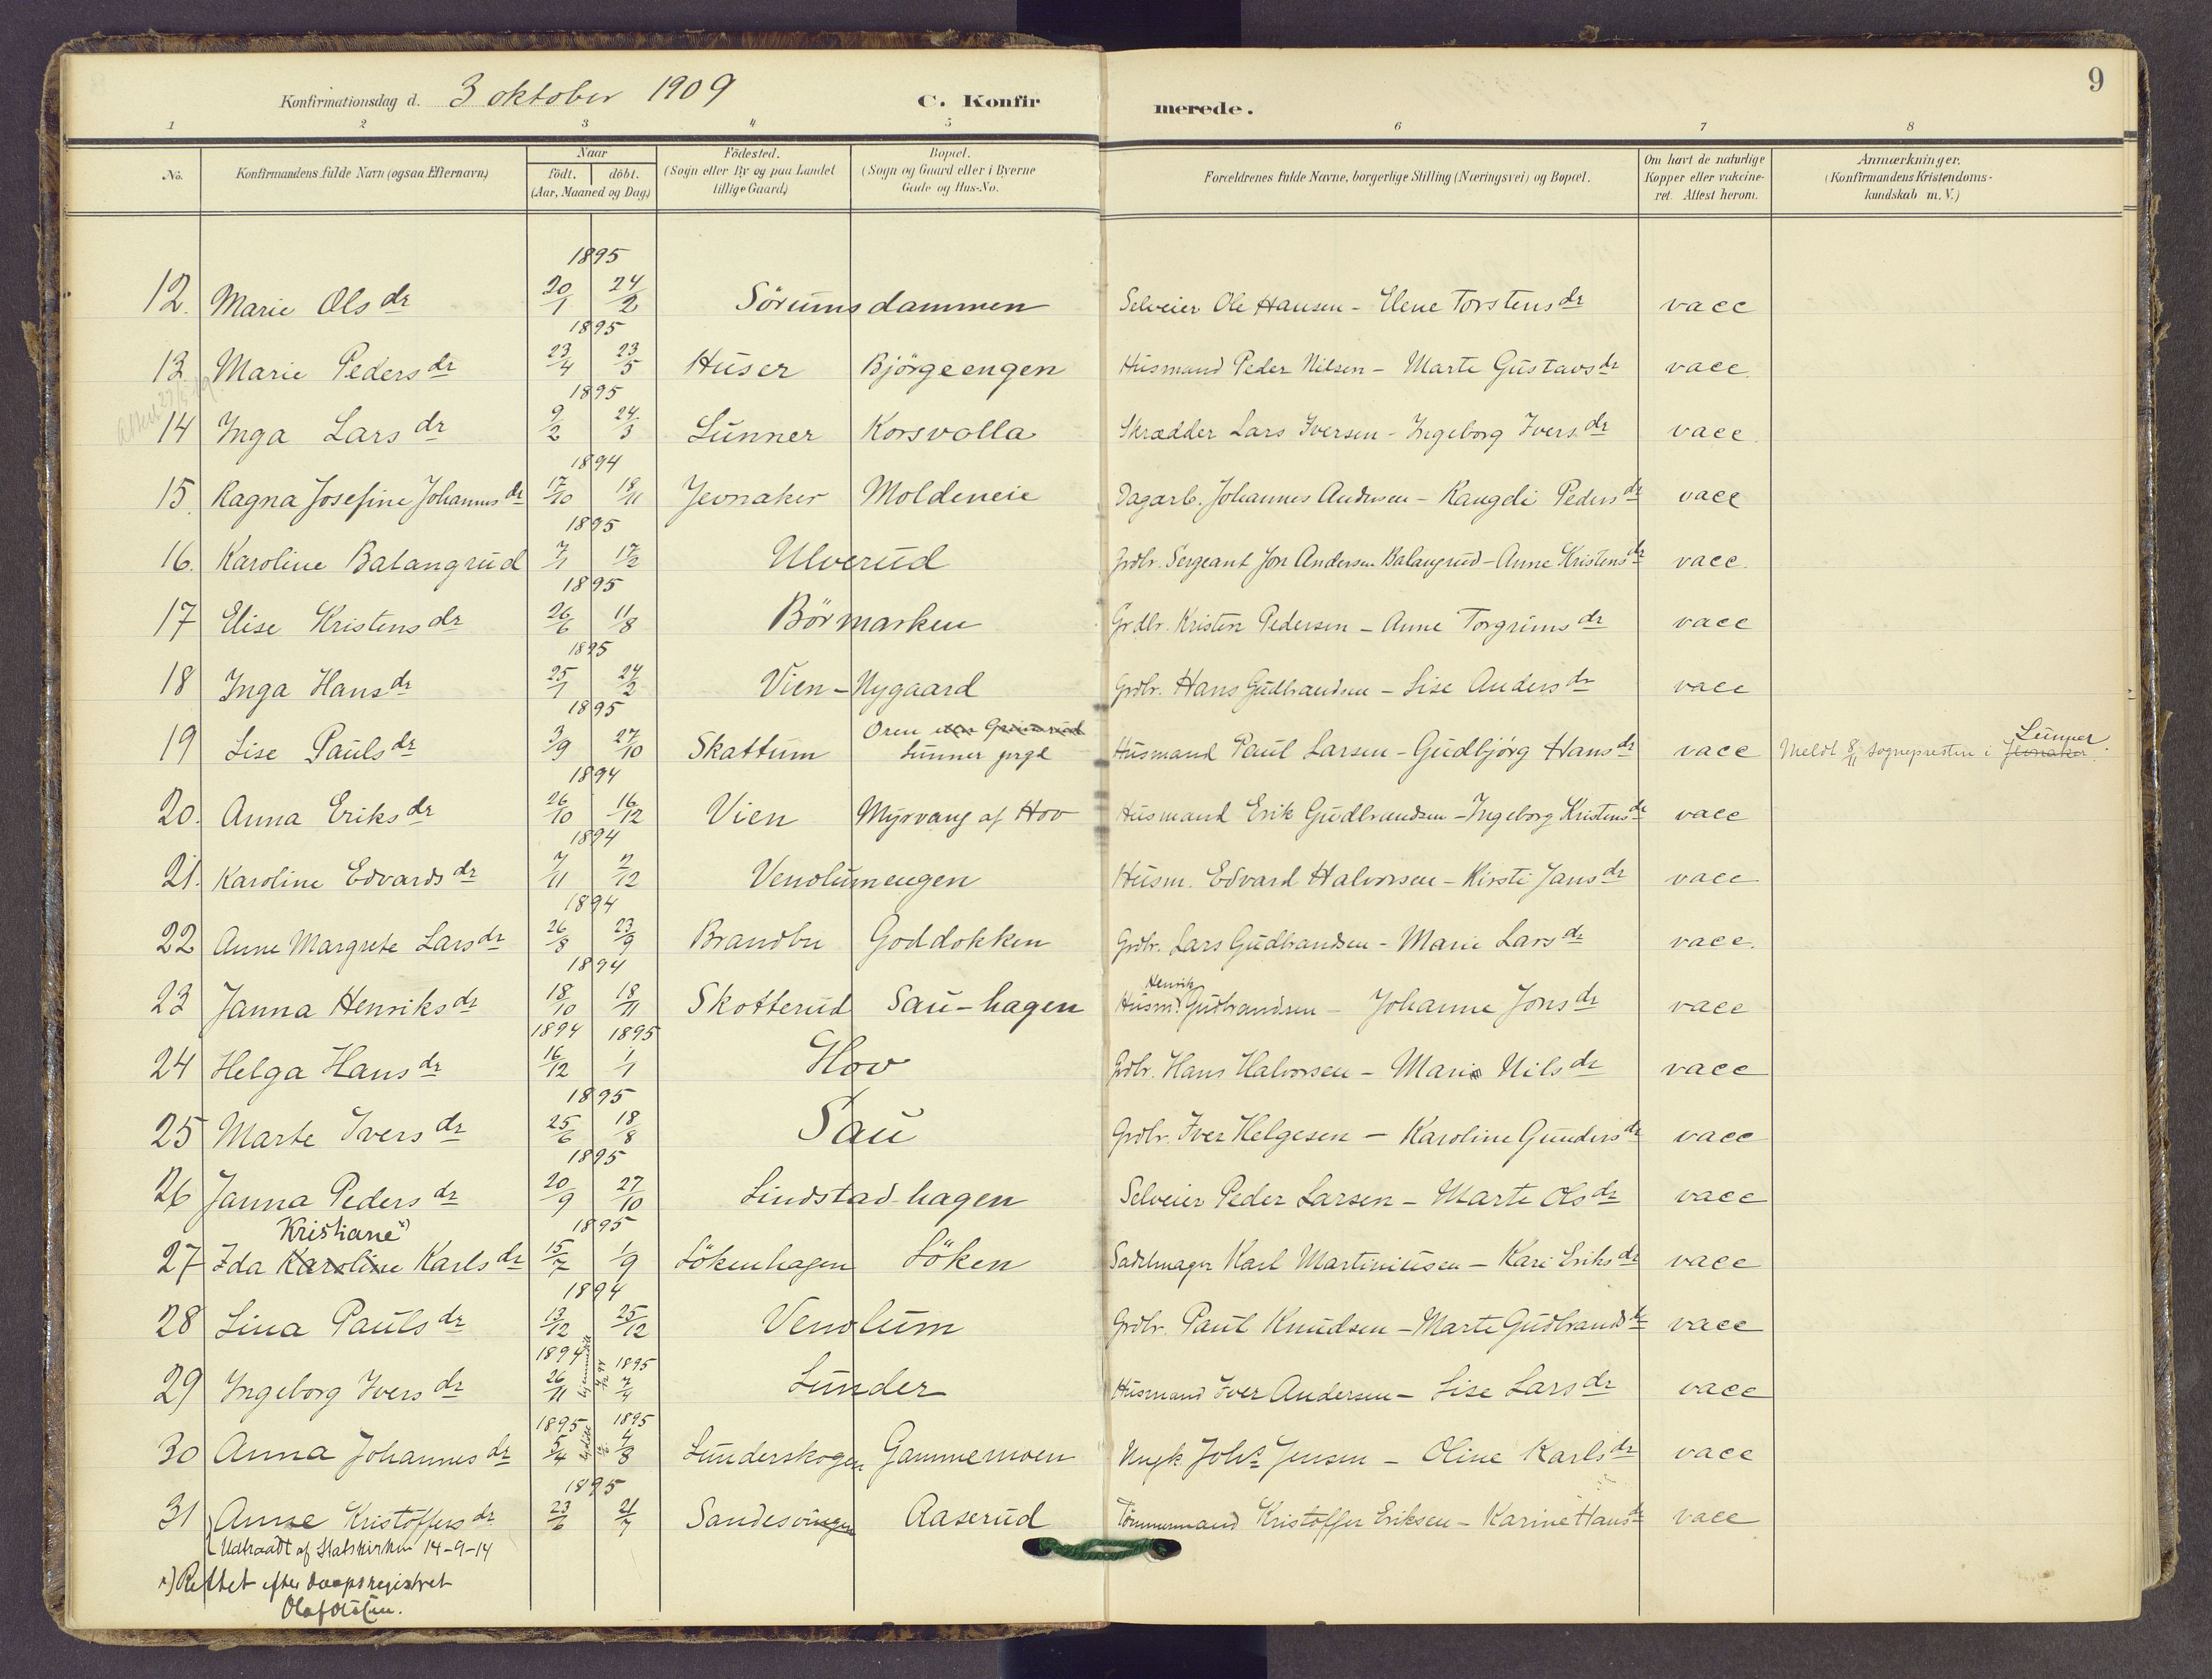 9
Konfirmationsdag d. 3 oktober 1909 C. Konfirmerede.
1 2 3 4 5 6 7 8
No. Konfirmandens fulde Navn (ogsaa Efternavn) Naar födt. döbt. (Aar, Maaned og Dag.) Födested. (Sogn eller By og paa Landet tillige Gaard.) Bopæl. (Sogn og Gaard eller i Byerne Gade og Hus-No. Forældrenes fulde Navne, borgerlige Stilling (Næringsvei) og Bopæl. Om havt de naturlige Kopper eller vakcineret. Attest herom. Anmærkninger. (Konfirmandens Kristendomskundskab m. V.)
1895
12. Marie Olsdr 20/1 24/2 Sörumsdammen Selveier Ole Hansen - Elene Torstensdr vacc
1895
13 Marie Pedersdr 23/4 23/5 Huser Björgeengen Husmand Peder Nilsen - Marte Gustavsdr vacc.
1895
14 Inga Larsdr 9/2 24/3 Lunner Korsvolla Skrædder Lars Iversen - Ingeborg Iversdr vacc.
1894
15. Ragna Josefine Johannesdr 17/10 18/11 Jevnaker Moldeneie Dagarb. Johannes Andersen - Rangdi Pedersdr vacc
1895
16. Karoline Balangrud 7/1 17/2 Ulverud Grdbr. Sergeant Jon Andersen Balangrud - Anne Kristensdr vacc.
1895
17 Elise Kristensdr 26/6 11/8 Börmarken Grdbr. Kristen Pedersen - Anne Torgrimsdr vacc
1895
18 Inga Hansdr 25/1 24/2 Vien - Nygaard Grdbr. Hans Gudbrandsen - Lise Andersdr vacc
1895
19 Lise Paulsdr 3/9 27/10 Skattum Oren Lunner prgd Husmand Paul Larsen - Gudbjörg Hansdr vacc Meldt 8/11 sognepresten i Jevnaker Lunner.
1894
20. Anna Eriksdr 26/10 16/12 Vien Myrvang af Hov Husmand Erik Gudbrandsen - Ingeborg Kristensdr vacc
1894
21. Karoline Edvardsdr 7/11 2/12 Venolumengen Husm. Edvard Halvorsen - Kirsti Jansdr vacc
1894
22 Anne Margrete Larsdr 26/8 23/9 Brandbu Goddokken Grdbr. Lars Gudbrandsen - Marie Larsdr vacc.
1894
23 Janna Henriksdr 18/10 18/11 Skotterud Sau-hagen Husm. Henrik Gudbrandsen - Johanne Jonsdr vacc
1894 1895
24 Helga Hansdr 16/12 1/1 Hov Grdbr. Hans Halvorsen - Mari Nilsdr vacc
1895
25 Marte Iversdr 25/6 18/8 Sau Grdbr. Iver Helgesen - Karoline Gundersdr vacc
1895
26 Janna Pedersdr 20/9 27/10 Lindstad-hagen Selveier Peder Larsen - Marte Olsdr vacc
Kristiane x) 1895
27 Ida Karoline Karlsdr 15/7 1/9 Lökenhagen Löken Sadelmager Karl Martiniusen - Kari Eriksdr vacc
1894
28 Lina Paulsdr 13/12 25/12 Venolum Grdbr. Paul Knudsen - Marte Gudbrandsdr vacc
1894 1895
29 Ingeborg Iversdr 26/11 7/4 Lunder Husmand Iver Andersen - Lise Larsdr vacc
1895 1895
30 Anna Johannesdr 5/4 4/8 Lunderskogen Gammemoen Ungk. Johs Jensen - Oline Karlsdr vacc
1895
31 Anne Kristoffersdr 23/6 21/7 Sandesvingen Aaserud Tömmermand Kristoffer Eriksen - Karine Hansdr vacc
Udtraadt af Statskirken 14-9-14
x) Rettet efter daapsregistret
Olaf Olafsen.